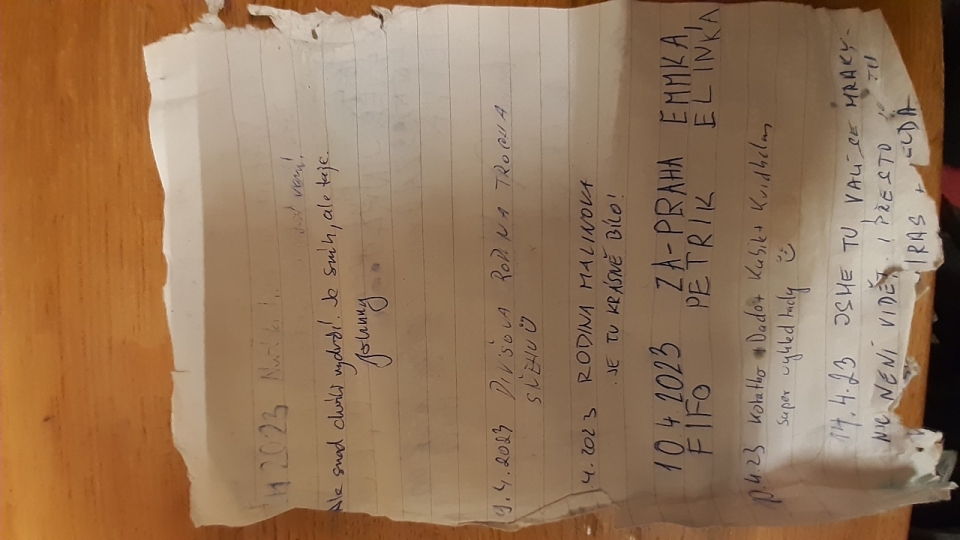 4 2023
Ale snad chvíli vydrží. Je sníh, ale taje.
Johnny
9.4.2023 DIVIŠOVA RODINA TROCHA
SLEZLI
.4.2023 RODINA MALINOVKA
JE TU KRÁSNĚ BÍLO!
10 4 2023 ZA-PRAHA EMMKA,
FIFO PETRIK ELINKA
.4.23 Kotatko + Dado + Kubik + Kvidhelm
super výhled tady
14.4.23 JSME TU VALÍ SE MRAKY-
NIC NENÍ VIDĚT, I PŘESTO
IRAS +